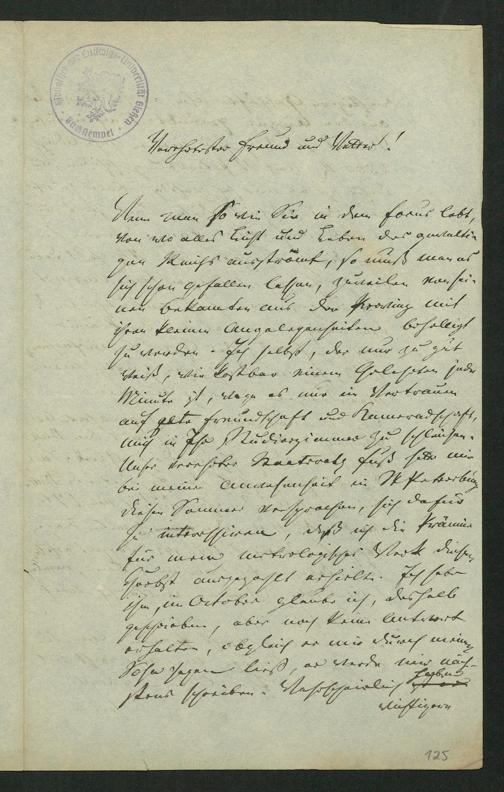 Bibliothek der Ludwigs-Universität Gießen
Verehrtester Freund und Vetter!
Wenn man so wie Sie in dem Focus lebt,
von wo alles Licht und Leben des gewalti-
gen Reichs ausströmt, so muß man es
sich schon gefallen lassen, zuweilen von sei-
nen Bekannten aus der Provinz mit
ihren kleinen Angelegenheiten behelligt
zu werden. Ich selbst, der nur zu gut
weiß, wie kostbar einem Gelehrten jede
Minute ist, wage es nur im Vertrauen
auf alte Freundschaft und Kameradschaft,
mich in Ihr Studierzimmer zu schleichen.
Unser verehrter Staatsrath Fuß hatte mir
bei meiner Anwesenheit in St Petersburg
diesen Sommer versprochen, sich dafür
zu interessiren, daß ich die Prämie
für mein metrologisches Werk diesen
Herbst ausgezahlt erhielte. Ich habe
ihm, im October glaube ich, deshalb
geschrieben, aber noch keine Antwort
erhalten, obgleich er mir durch meinen
Sohn sagen ließ, er werde mir näch-
stens schreiben. Wahrscheinlich haben
wichtigere
125